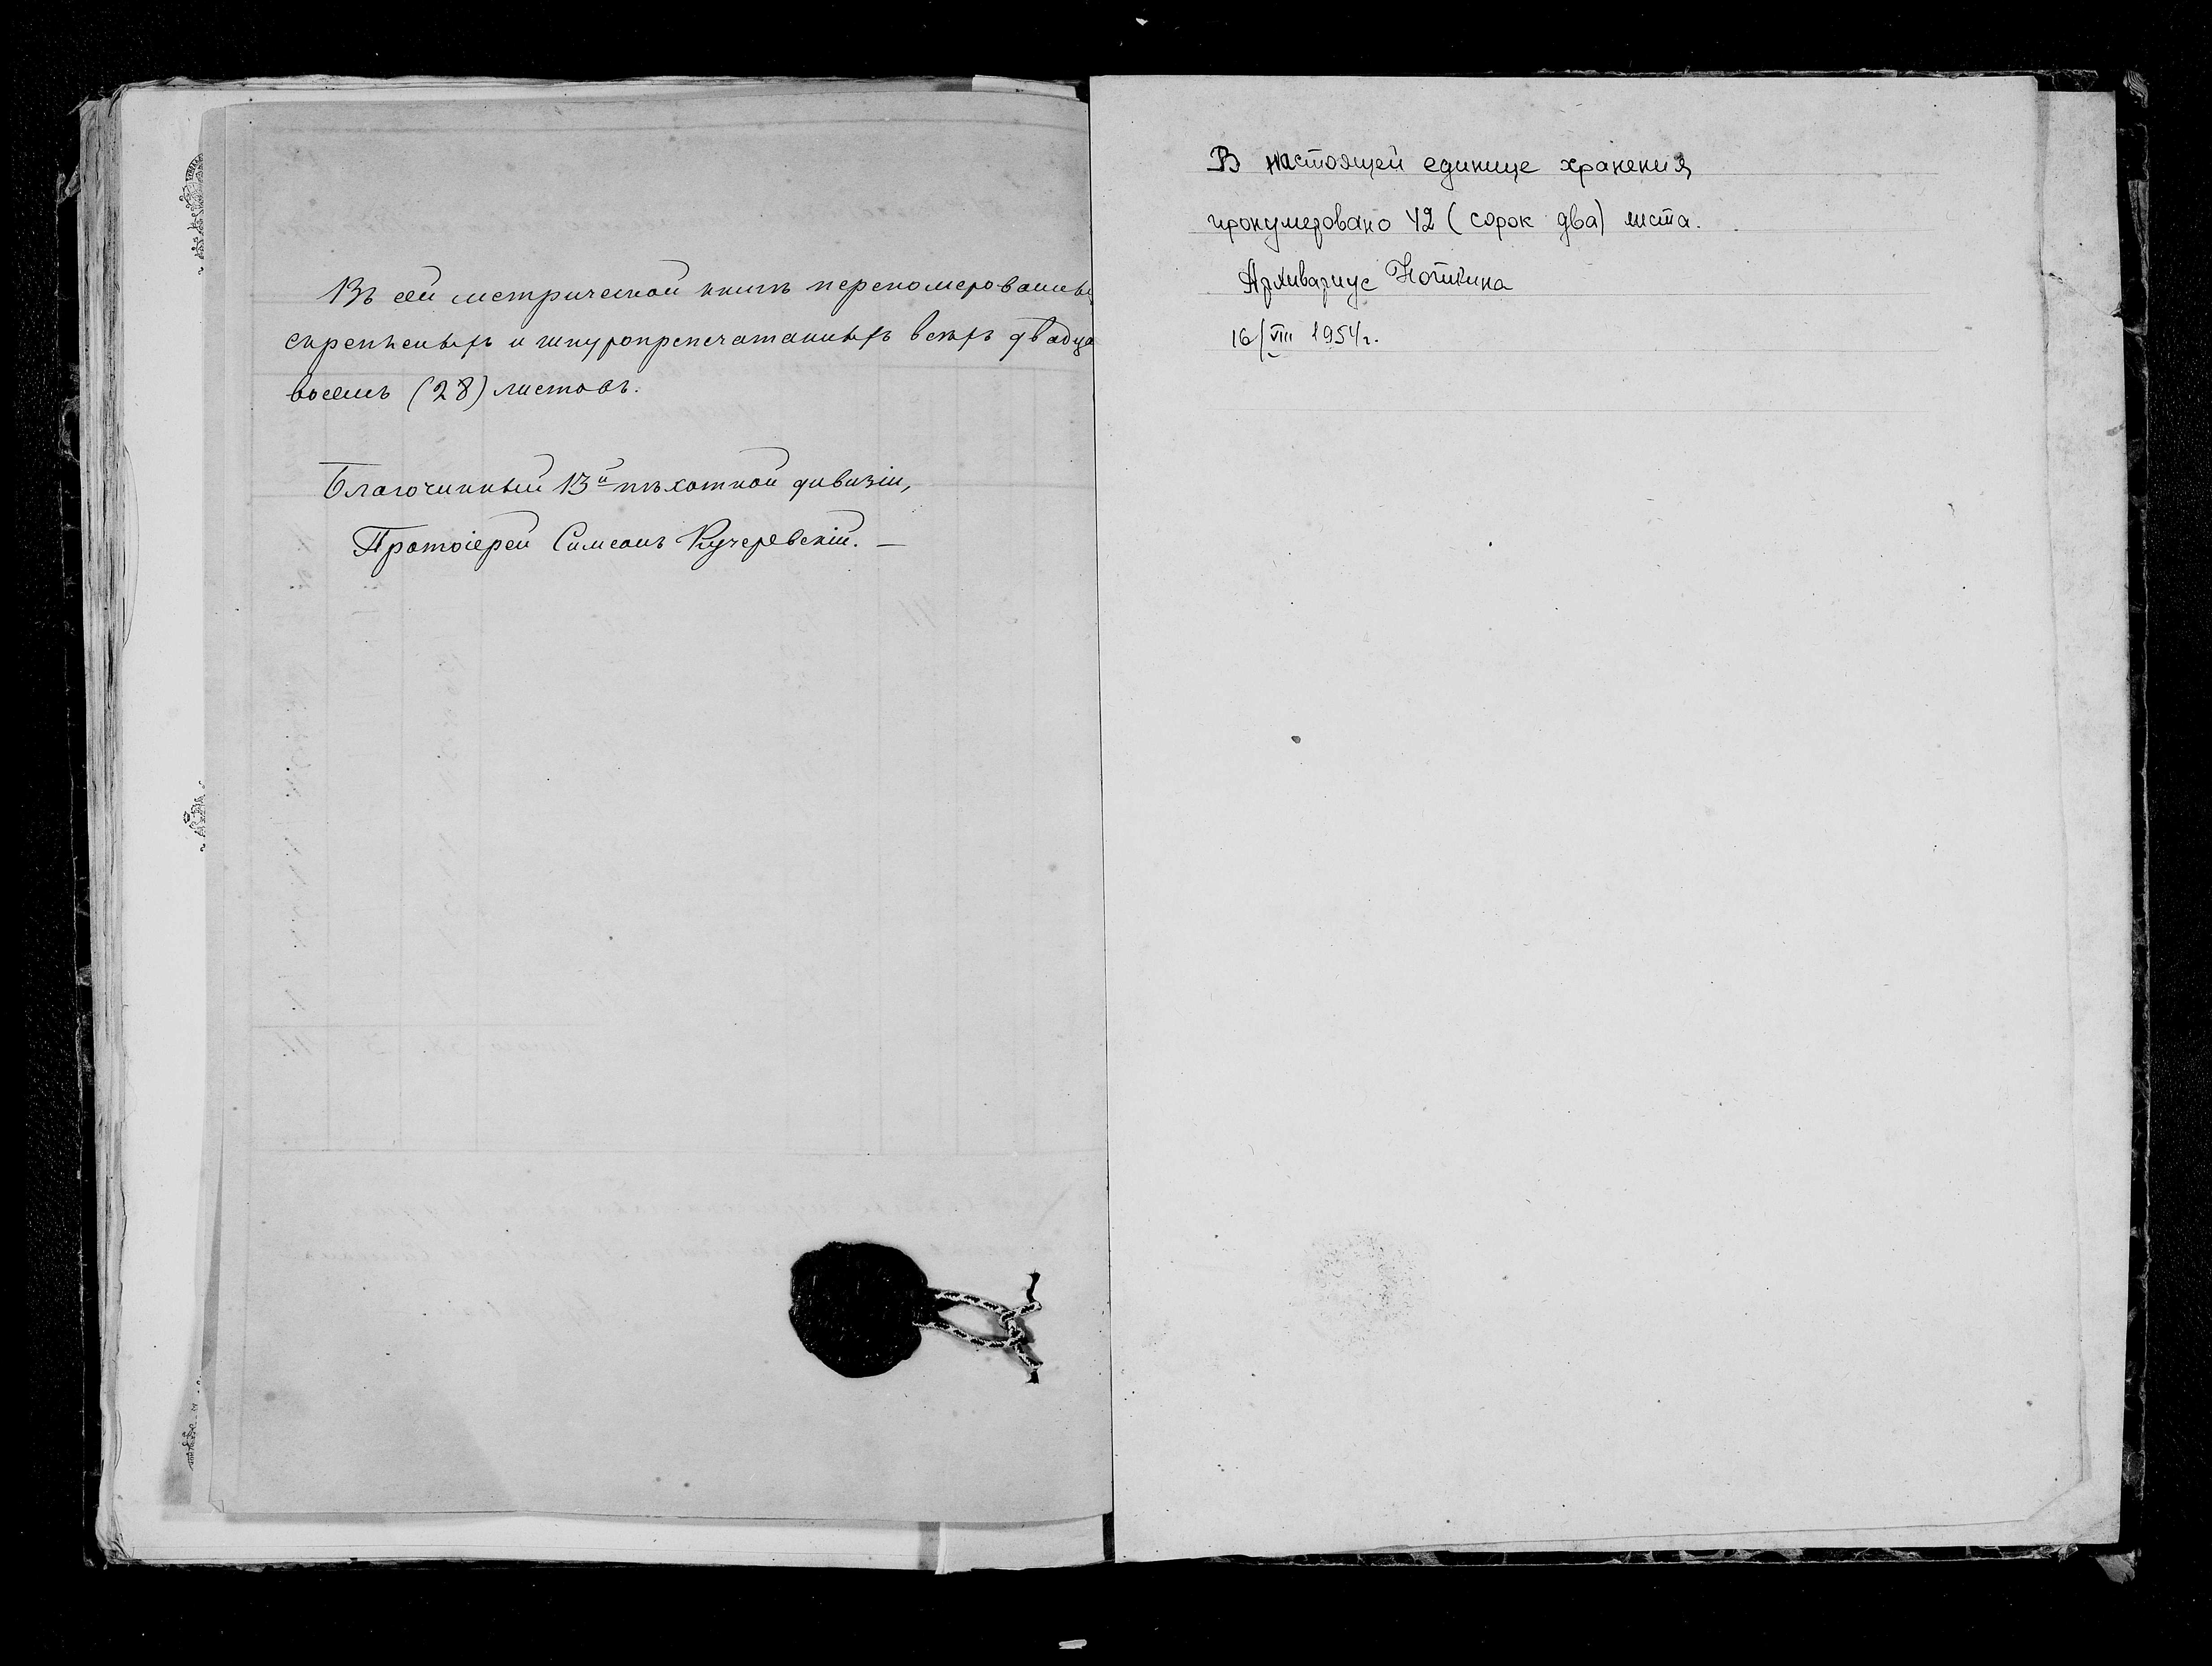 Въ сей метрической книгѣ переномерованны
скрепленныхъ и шнуропрепечатанныхъ всѣхъ двадца
восемь (28) листовъ.
Благочинный 13й пѣхотной дивизіи,
Протоіерей Симеонъ Кучеревскій. —
В настоящей единице хранения
пронумеровано 42 (сорок два) листа.
Архивариус Ноткина
16/VIII 1954 г.